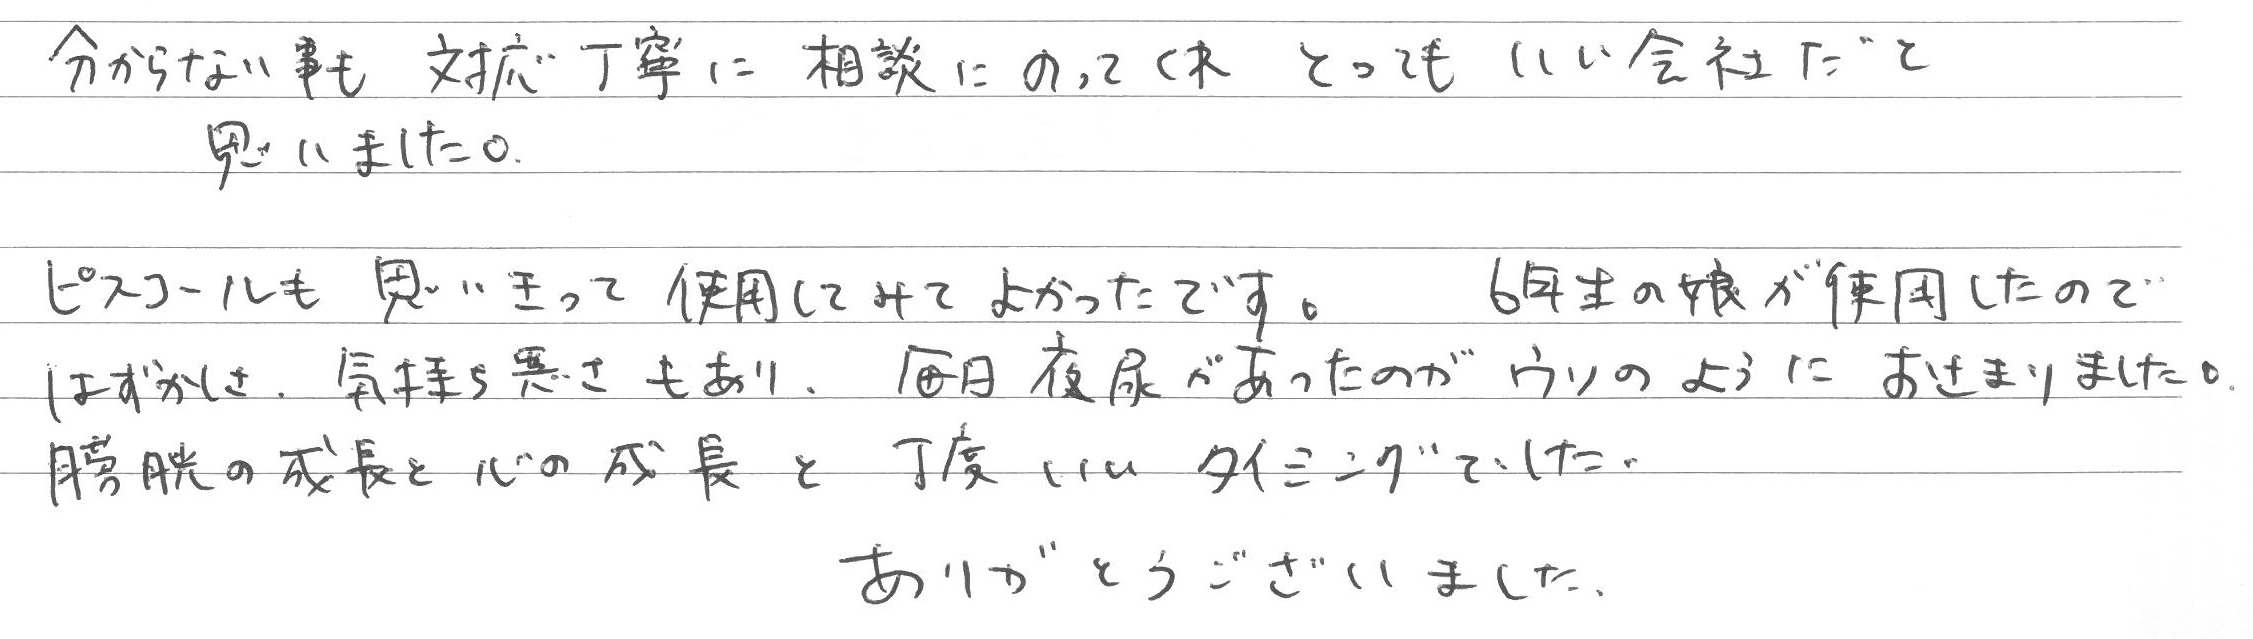 分からない事も 対応丁寧に 相談にのってくれ とっても いい会社だと
思いました。
ピスコールも 思いきって 使用してみて よかったです。 6年生の娘が使用したので
はずかしさ、気持ち悪さもあり、毎日夜尿があったのがウソのように おさまりました。
膀胱の成長と心の成長と 丁度いい タイミングでした。
ありがとうございました。